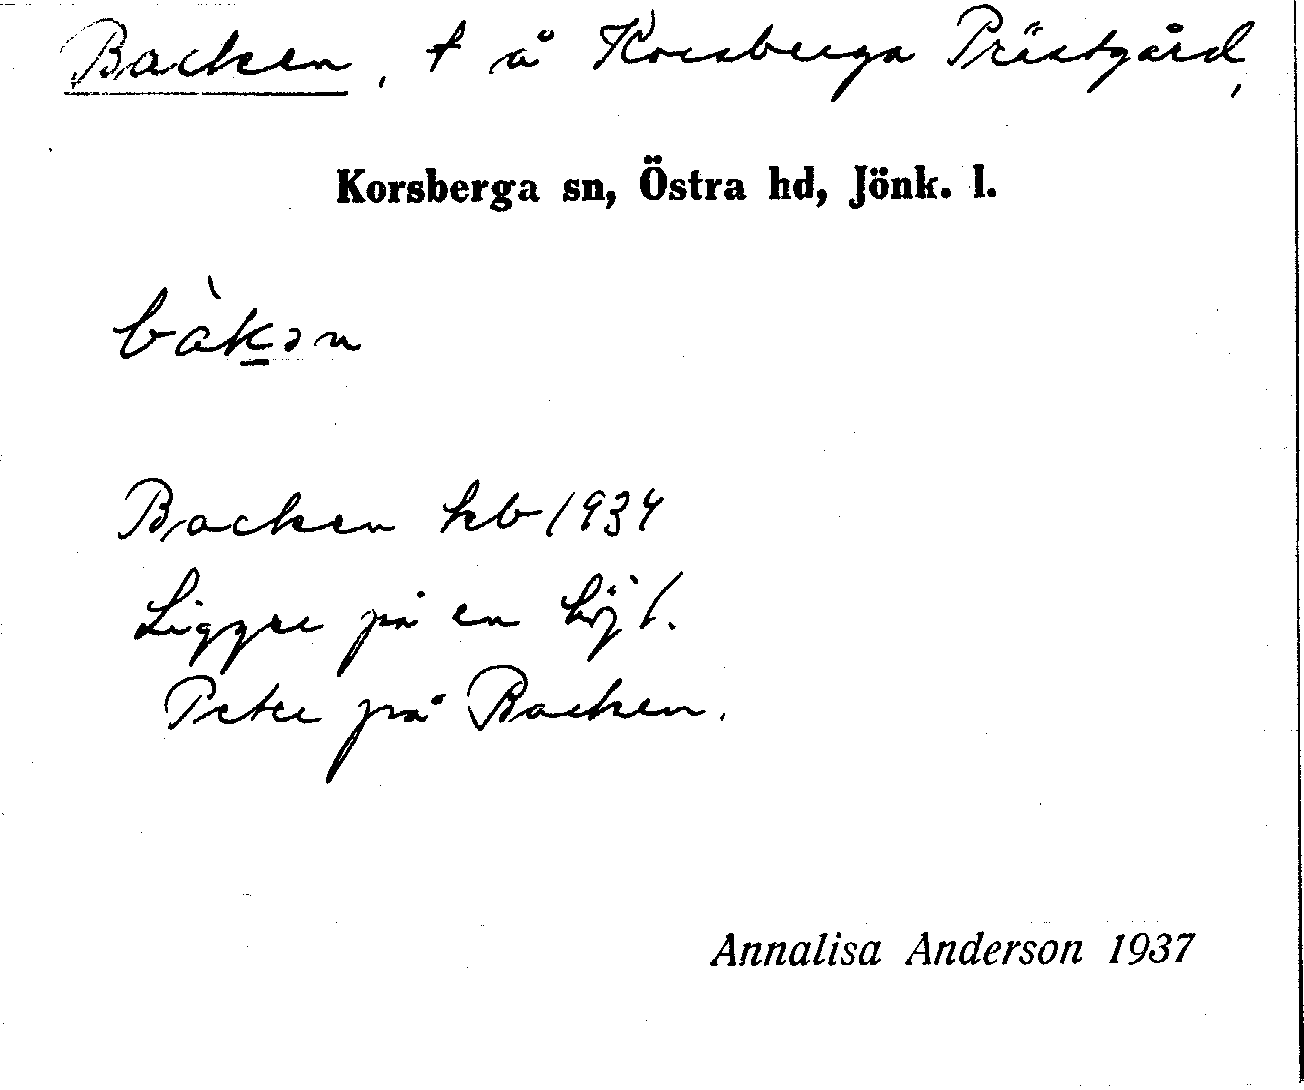 Backen, t å Korsberga Prästgård,
Korsberga sn, Östra hd, Jönk. l.
bàkən
Backen kb 1934
Ligger på en höjd.
Peter på Backen.
Annalisa Anderson 1937